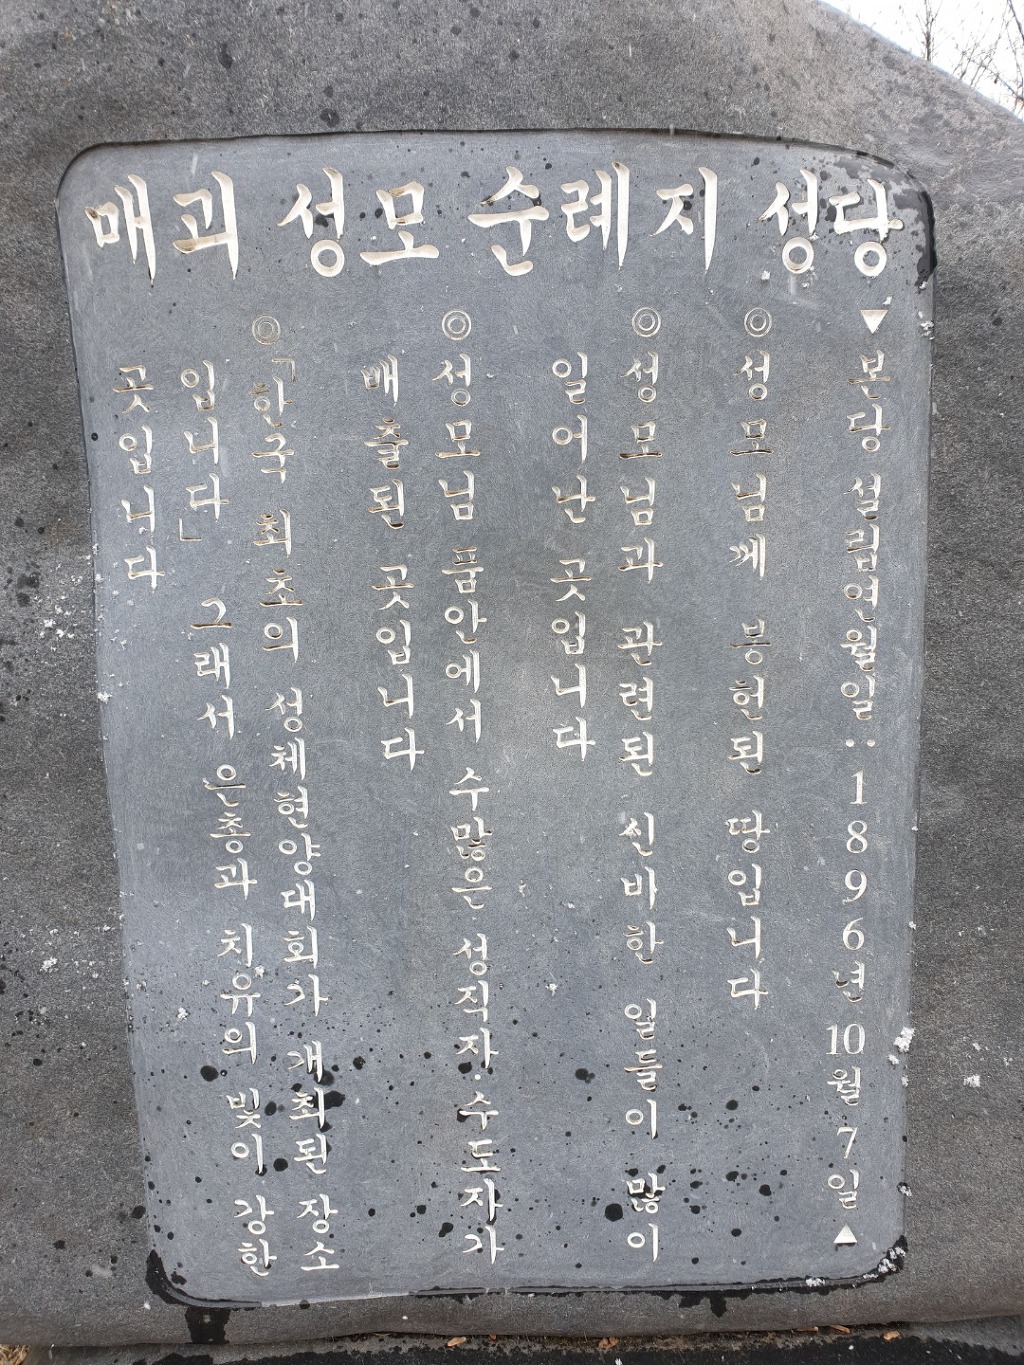 매괴 성모 순례지 성당
▼본당 설립연월일 : 1896년 10월 7일▲
◎성모님께 봉헌된 땅입니다
◎성모님과 관련된 신비한 일들이 많이
일어난 곳입니다
◎성모님 품안에서 수많은 성직자·수도자가
배출된 곳입니다
◎「한국 최초의 성체현양대회가 개최된 장소
입니다」 그래서 은총과 치유의 빛이 강한
곳입니다